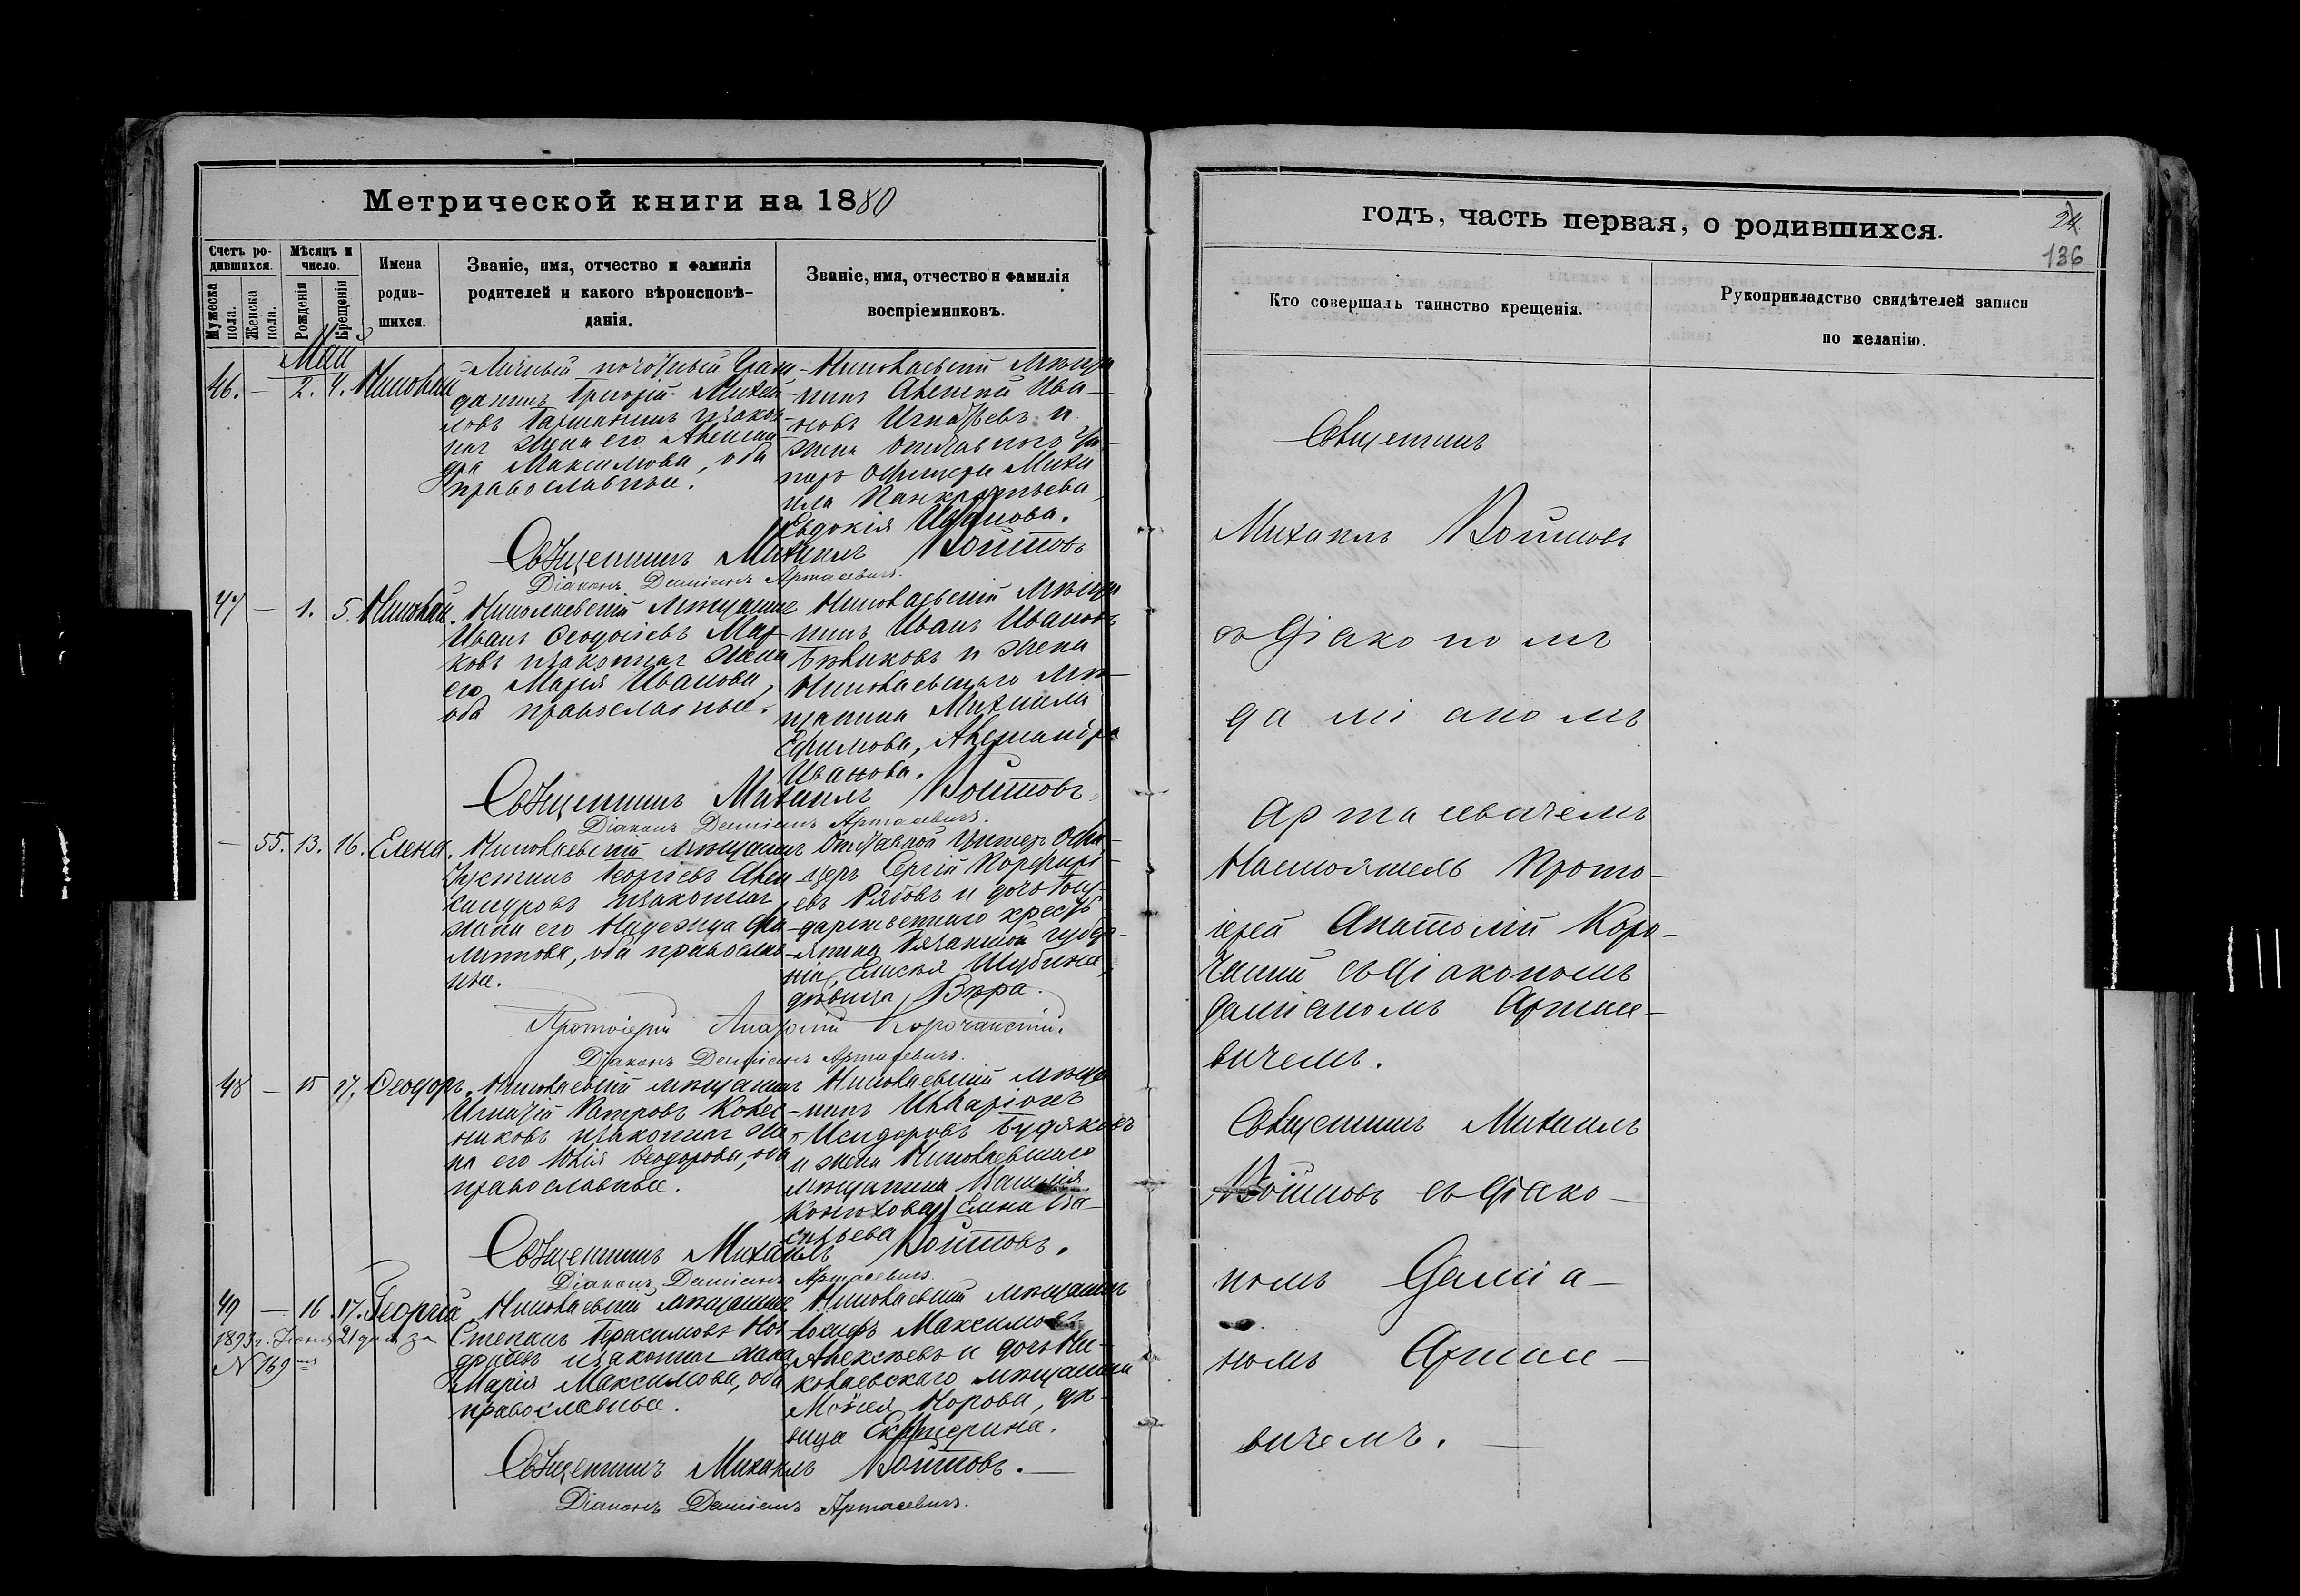 Метрической книги на 1880
Счетъ ро-
дившихся.
Мужеска пола.
Женска пола.
Мѣсяцъ и
число.
Рожденія
Крещенія
Имена
родив-
шихся.
Званіе, имя, отчество и фамилія
родителей и какого вѣроисповѣ-
данія.
Званіе, имя, отчество и фамилія
воспріемниковъ.
Май
46. — 2. 4. Николай
Личный почотный Граж-
данинъ Григорій Михай-
ловъ законная
жена его Алексан-
дра Максимова, оба
православные.
Николаевскій Мѣща-
нинъ Алексѣй Ива-
новъ Игнатьевъ и
жена отставного Ун-
теръ Офицера Миха
ила Панкратьева,
Евдокія Иванова.
Священникъ Михаилъ Войтовъ
Діаконъ Даміанъ Артасевичъ.
47 — 1. 5. Николай.
Николаевскій Мѣщанинъ
Иванъ Ѳеодосіевъ Мар-
ковъ и законная жена
его Марія Иванова,
оба православные.
Николаевскій Мѣща
нинъ Иванъ Ивановъ
Бѣликовъ и жена
Николаевскаго Мѣ-
щанина Михаила
Ефимова, Александра
Иванова.
Священникъ Михаилъ Войтовъ.
Діаконъ Даміанъ Артасевичъ.
— 55. 13. 16. Елена.
Николаевскій мѣщанинъ
Іустинъ Георгіевъ Алек-
сандровъ и законная
жена его Надежда Фи-
липпова, оба православ-
ные.
Отставной Унтеръ Офи-
церъ Сергій Порфирі-
евъ Рябовъ и дочь Госу-
дарственнаго кресть
янина Рязанской губер-
ніи, Елисея Шубина,
дѣвица Вѣра.
Протоіерей Анатолій Корочанскій.
Діаконъ Даміанъ Артасевичъ.
48 — 15 17. Ѳеодоръ.
Николаевскій мѣщанинъ
Игнатій Петровъ Колес-
никовъ и законная же-
на его Юлія Ѳеодорова, оба
православные.
Николаевскій мѣща
нинъ Илларіонъ
Исидоровъ Будяковъ
и жена Николаевскаго
мѣщанина Василія
Конюхова, Елена Ва-
сильева
Священникъ Михаилъ Войтовъ.
Діаконъ Даміанъ Артасевичъ.
49 — 16 17. Георгій.
1893 г. Іюня 21 дня за
N 169
Николаевскій мѣщанинъ
Степанъ Герасимовъ
и законная жена
Марія Максимова, оба
православные.
Николаевскій мѣщанинъ
Іосифъ Максимовъ
Алексѣевъ и дочь Ни-
колаевскаго мѣщанина
Моисея Норова, дѣ-
вица Екатерина.
Священникъ Михаилъ Войтовъ.
Діаконъ Даміанъ Артасевичъ.
годъ, часть первая, о родившихся.
24
136
Кто совершалъ таинство крещенія.
Рукоприкладство свидѣтелей записи
по желанію.
Священникъ
Михаилъ Войтовъ
съ Діакономъ
Даміаномъ
Артасевичемъ
Настоятель Прото-
іерей Анатолій Коро-
чанскій съ Діакономъ
Даміаномъ Артасе-
вичемъ.
Священникъ Михаилъ
Войтовъ съ Діако-
номъ Даміа-
номъ Артасе-
вичемъ.